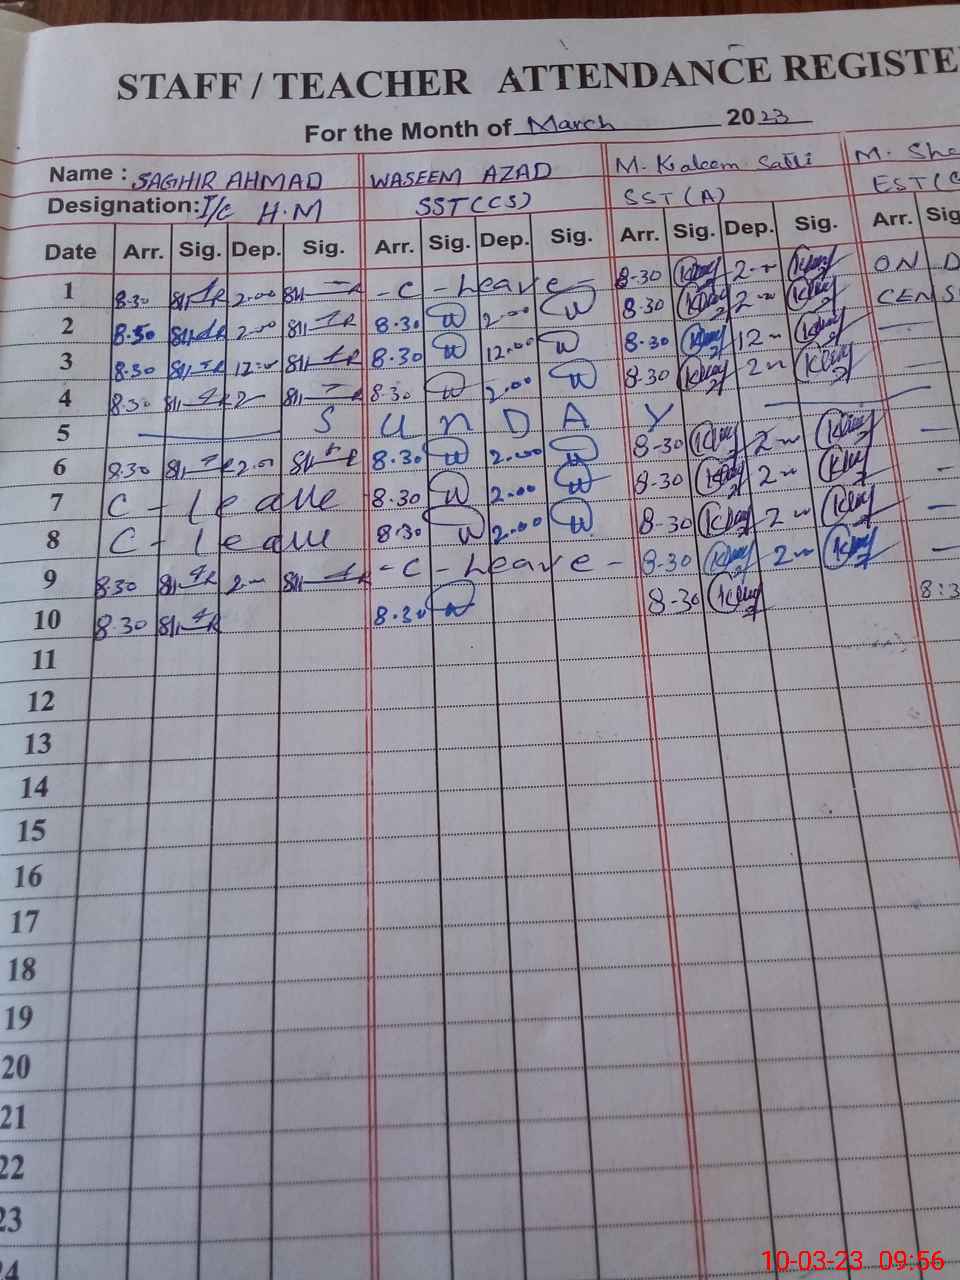 STAFF / TEACHER ATTENDANCE REGISTE
For the Month of March 2023
Name : SAGHIR AHMAD WASEEM AZAD M. Kaleem Satti M. Sha
Designation: I/C H.M SST(CS) SST(A) EST(
Date Arr. Sig. Dep. Sig. Arr. Sig. Dep. Sig. Arr. Sig. Dep. Sig. Arr. Sig
1 8.30 2.00 - C - Leave 8-30 2-00 ON D
2 8.30 2.00 8.30 2.00 8-30 2-00 CENS
3 8.30 12.00 8.30 12.00 8-30 12-00 —
4 8.30 2 8.30 2.00 8-30 2-00 —
5 S U N D A Y
6 8.30 2.00 8.30 2.00 8-30 2-00 —
7 C - leave 8.30 2.00 8-30 2-00 —
8 C - leave 8.30 2.00 8-30 2-00 —
9 8.30 2-00 - C - Leave - 8-30 2-00 —
10 8.30 8.30 8-30 8:3
11
12
13
14
15
16
17
18
19
20
21
22
23
24
10-03-23 09:56